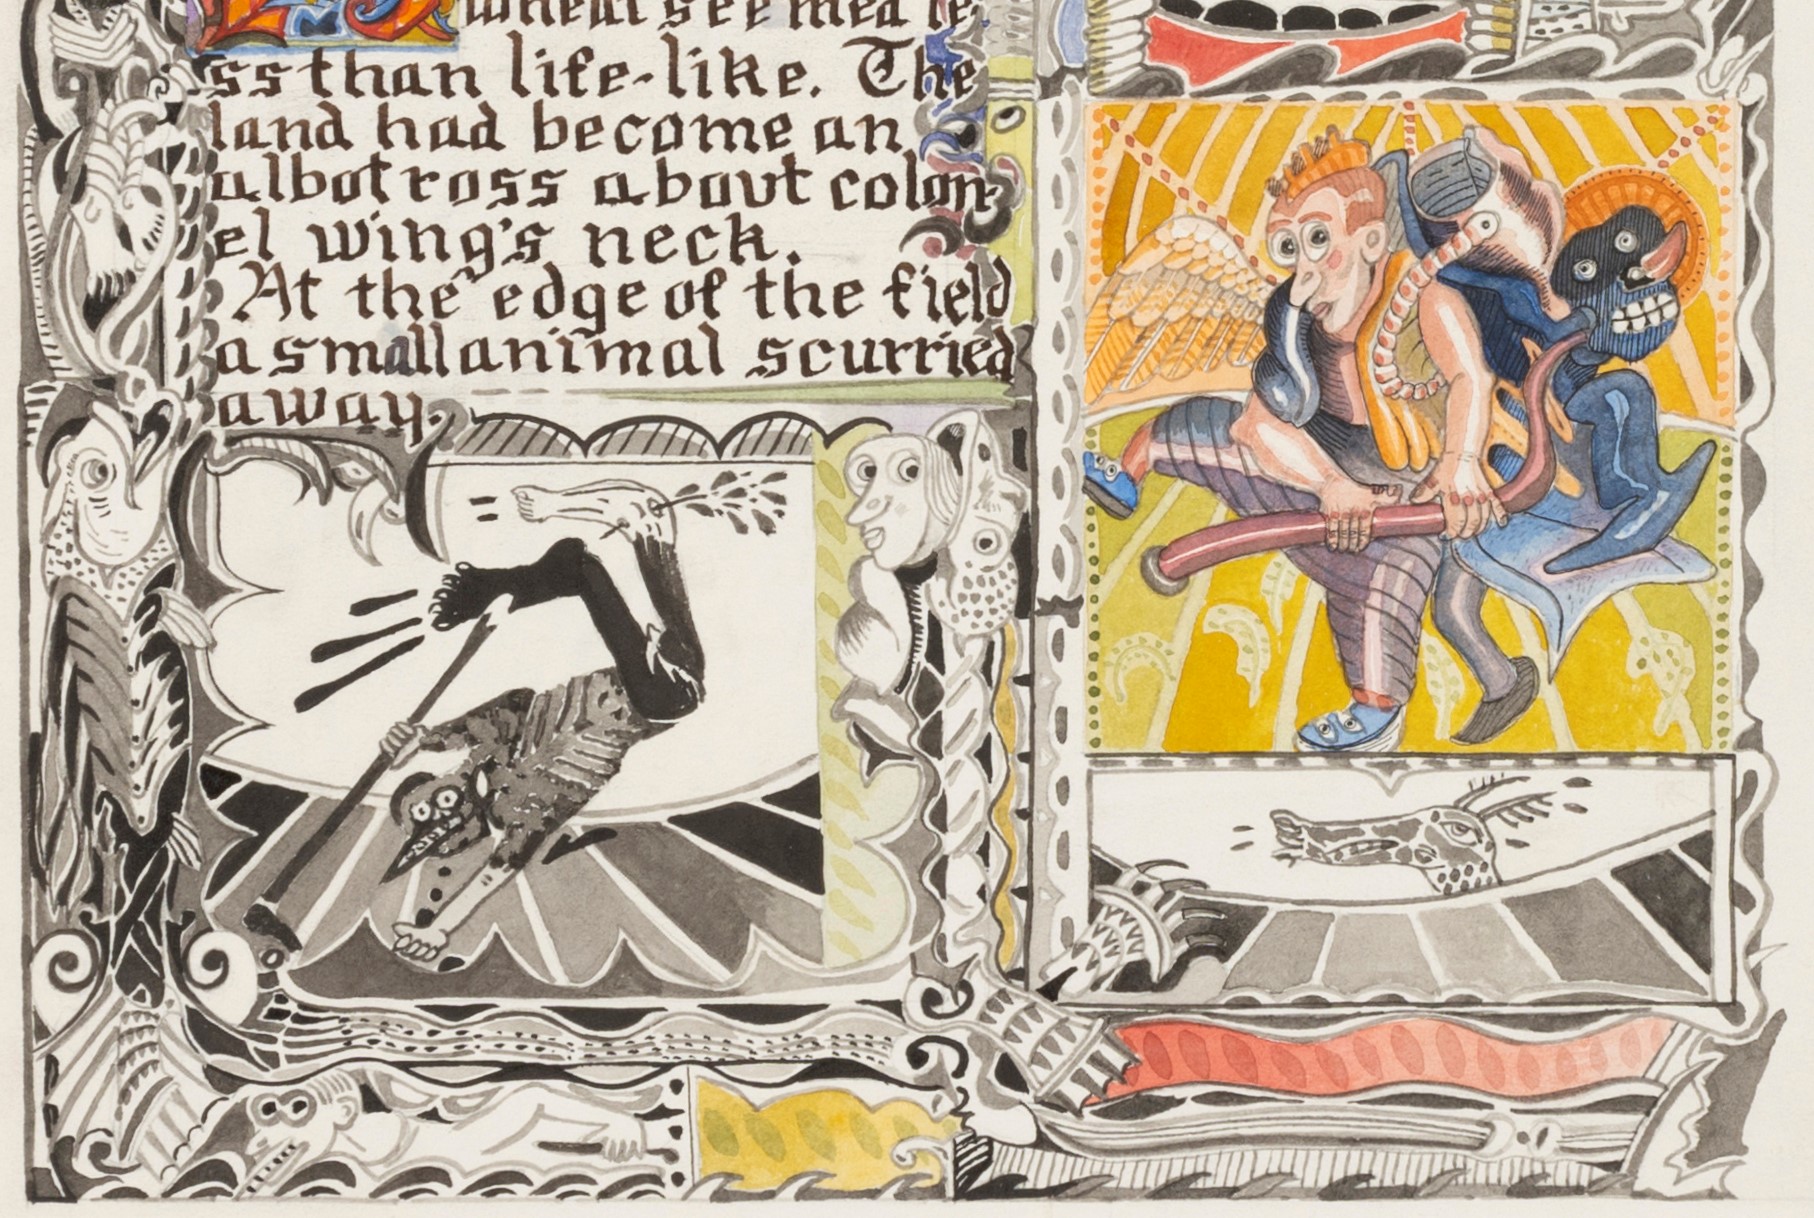 wheat seemed le
ss than life-like. The
land had become an
albotross about colon-
el wing's neck.
At the edge of the field
a small animal scurried
away.